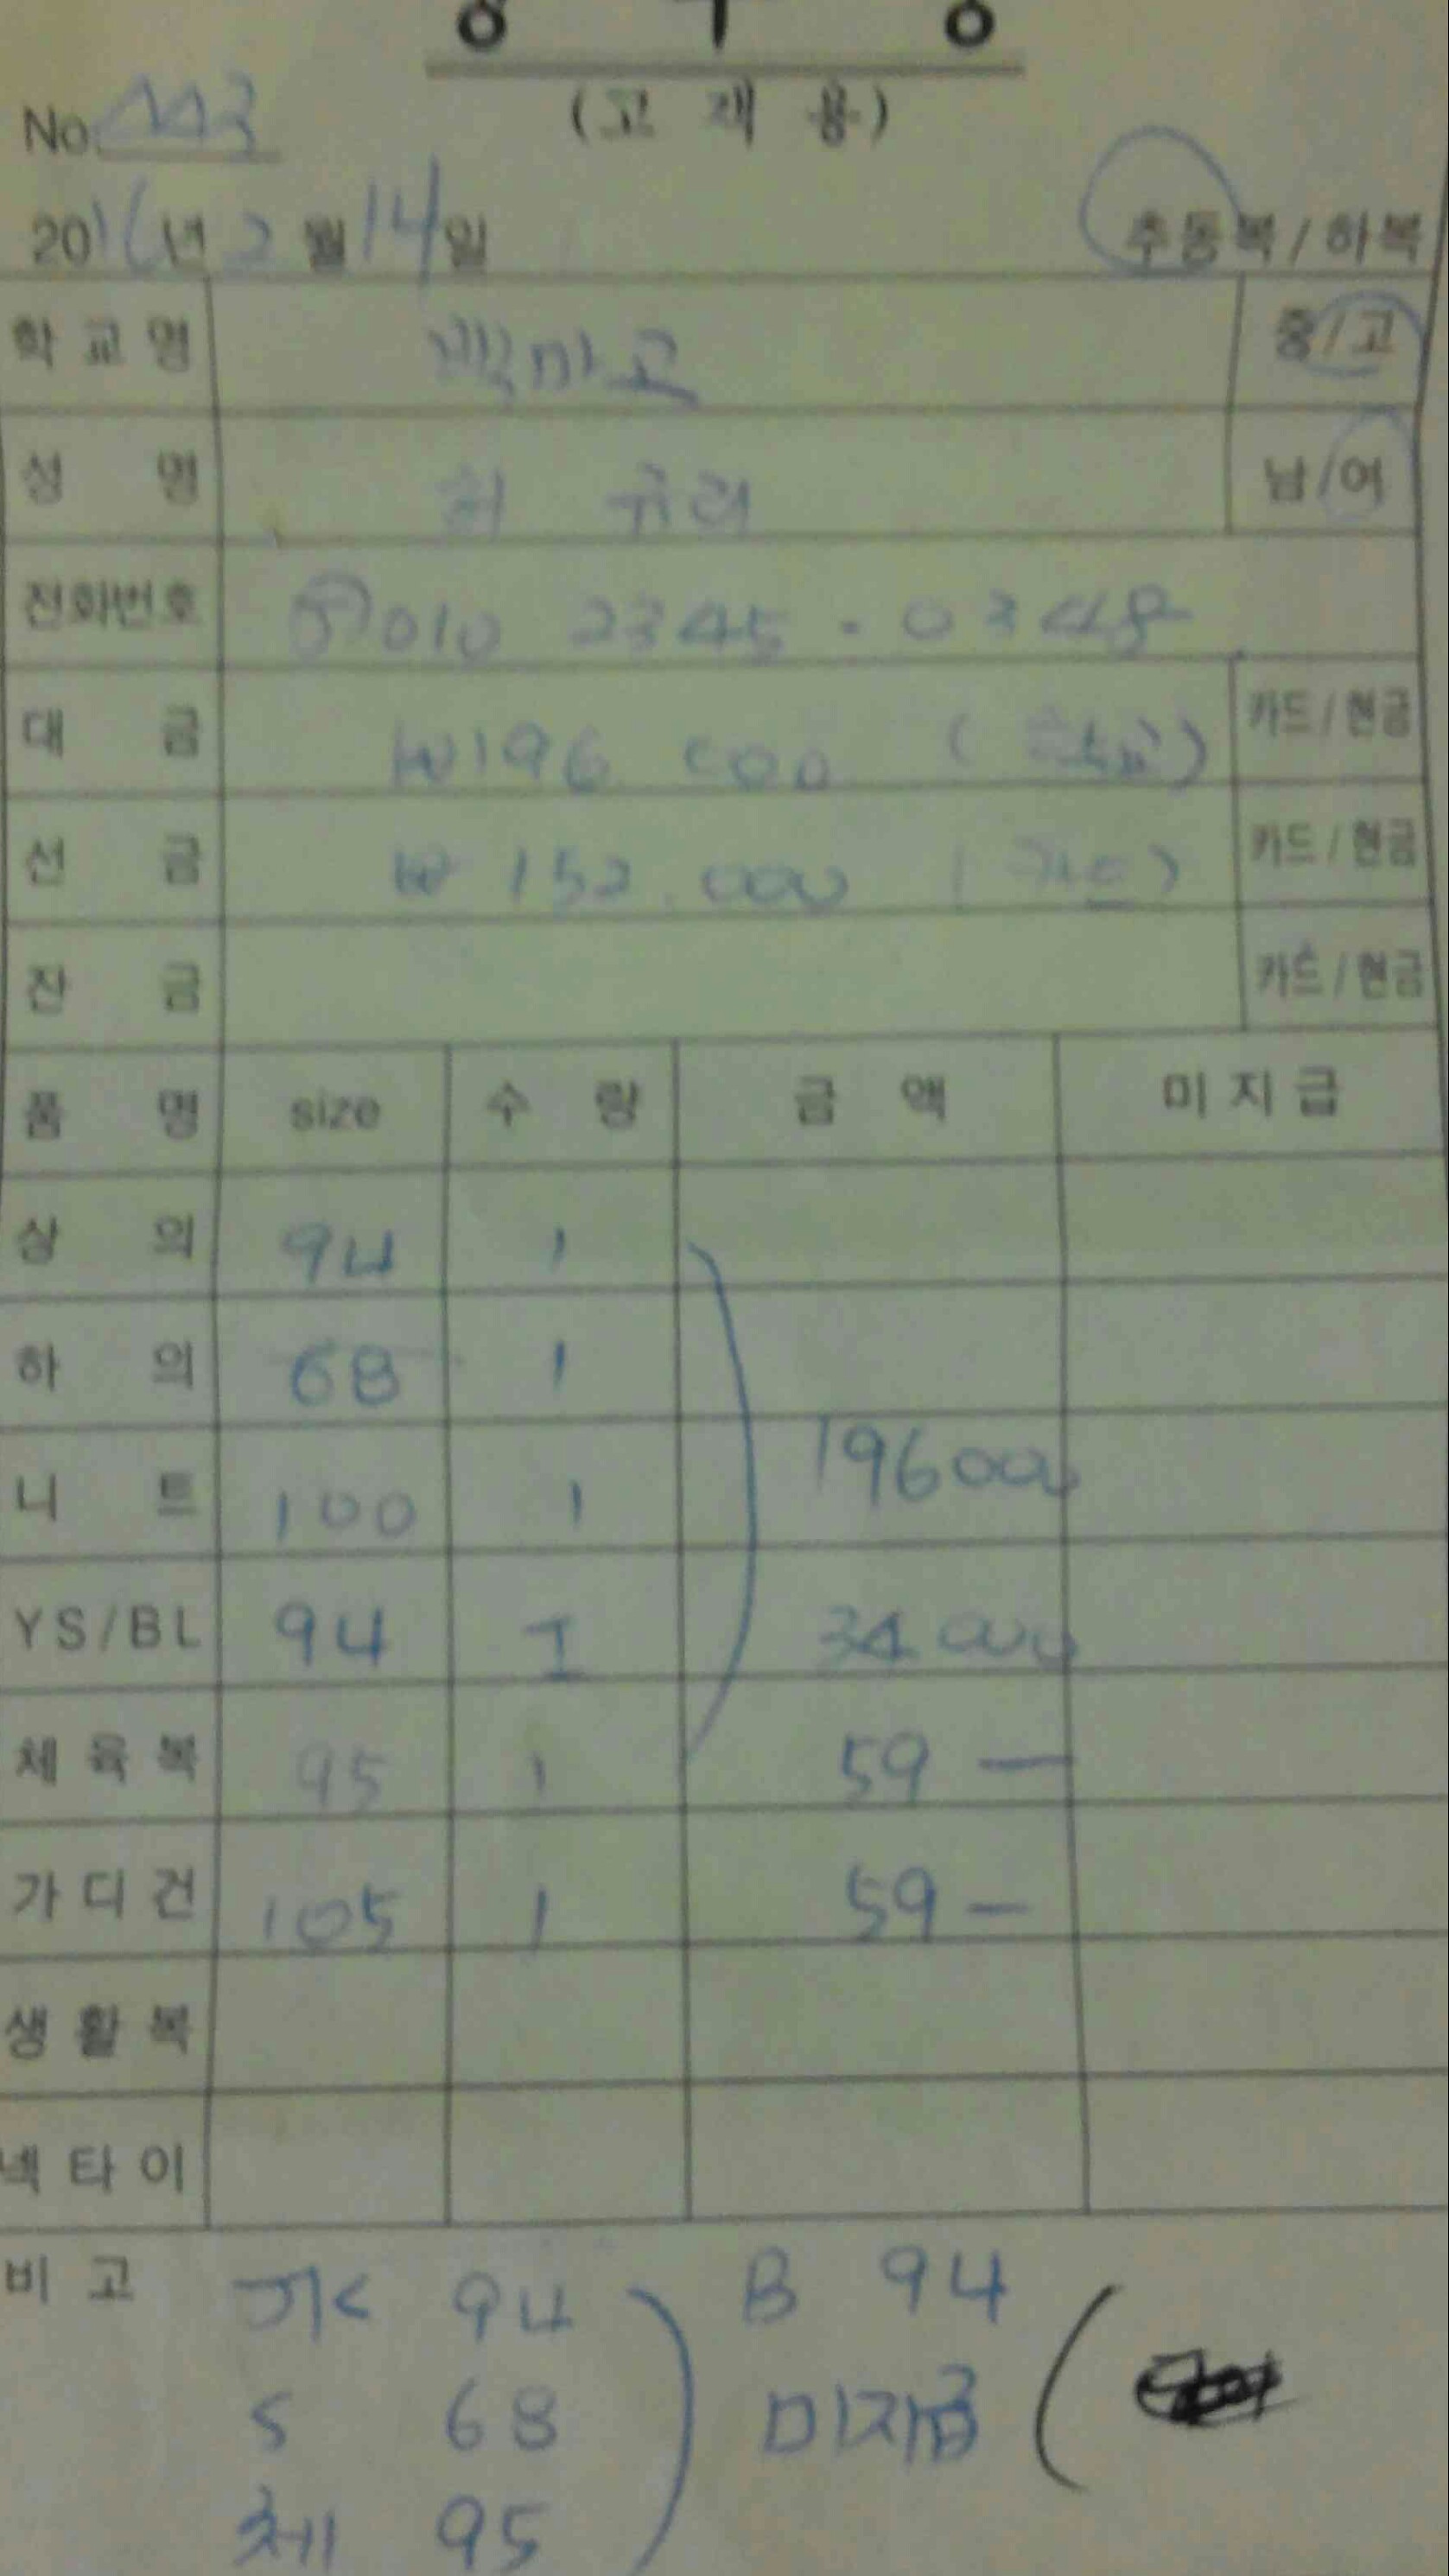 (고객용)
No.
2016년 2월 14일 추동복/하복
학교명 백마고 중/고
성명 허 규리 남/여
전화번호 010 2345 · 0348
대금 ₩196 000 카드/현금
선금 ₩152.000 (카드) 카드/현금
잔금 카드/현금
품명 size 수량 금액 미지급
상의 94 1
하의 68 1
니트 100 1 196000
YS/BL 94 1 34.000
체육복 95 1 59 —
가디건 105 1 59 —
생활복
넥타이
비고 JK 94 B 94
S 68 미지급
체 95